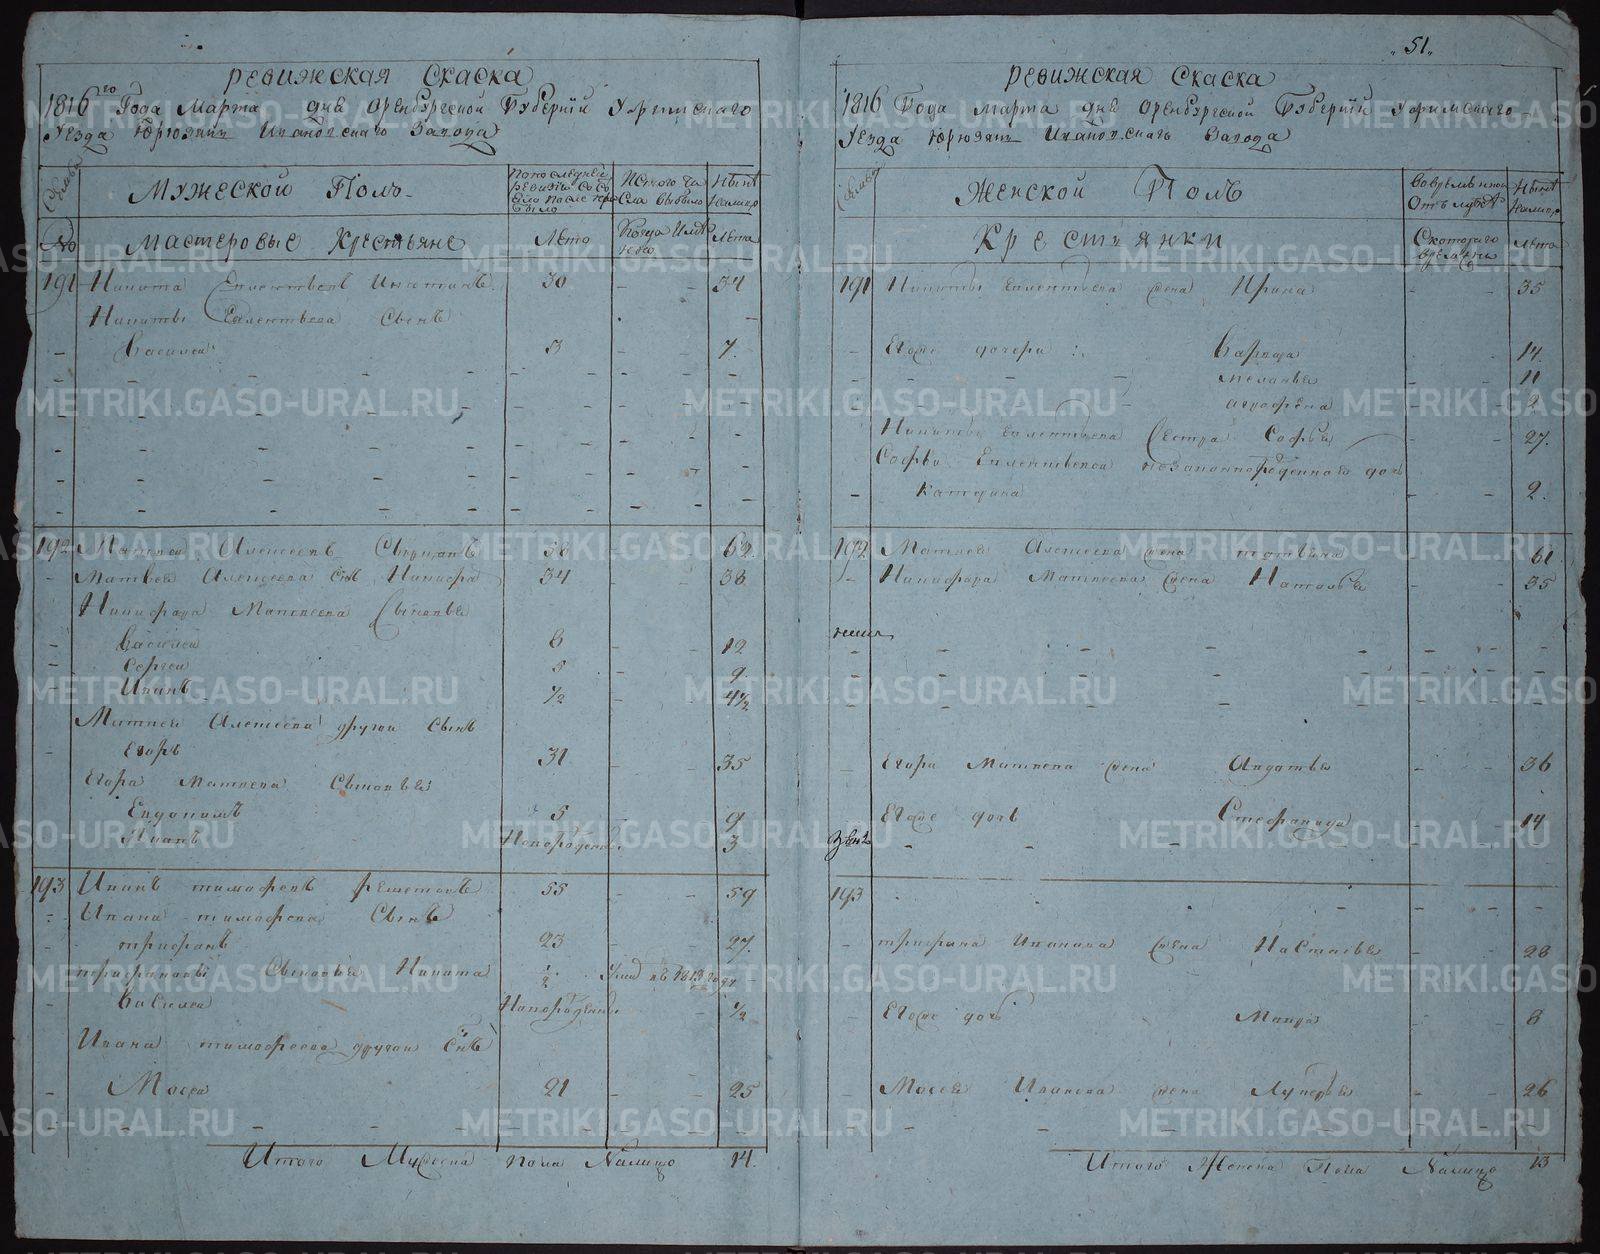 51
Ревижская Скаска
1816го Года Марта дня Оренбургской Губернїи Уфимскаго
Уезда Юрюзань Ивановскаго Завода
Семьи
Мужеской Полъ
По последней ревизїи состояло
Ныне налицо
№
Мастеровые Крестьяне
Лето
Когда имянно
Лета
191 Никита Силентьевъ 30 - - 34
Никиты Силентьева Сынъ
Василеи 3 - - 7
192 Матвеи Алексеевъ 58 - - 62
Матвея Алексеева Снъ Никифоръ 34 - - 38
Никифора Матвеева Сыновья
Василеи 8 12
Сергеи 5 9
Иванъ 1/2 4 1/2
Матвея Алексеева другои Сынъ
Егоръ 31 35
Егора Матвеева Сыновья
Евдокимъ 5 9
Иванъ Новорожденъ 3
193 Иванъ тимофеевъ Решетовъ 55 - - 59
Ивана тимофеева Сынъ
трифанъ 23 27
трифановы Сыновья Никита 1/2 Умре въ 1813 году
Василеи Новорожденъ 1/2
Ивана тимофеева другои Снъ
Мосеи 21 - - 25
Итого Мужеска пола Налицо 14
Ревижская Скаска
1816 Года Марта дня Оренбургской Губернїи Уфимскаго
Уезда Юрюзань Ивановскаго Завода
Семьи
Женской Полъ
Во временной отлучке
Ныне налицо
Крестьянки
Скотораго времяни
Лета
191 Никиты Силентьева жена Ирина - - 35
Егоже дочери: Варвара 14
Меланья 11
Агрофена 2
Никиты Силентьева Сестра Софья 27
Софьи Силентьевой незаконнорожденная дочь
Катерина 2
192 Матвея Алексеева жена татьяна 61
Никифора Матвеева жена Наталья 35
Егора Матвеева жена Авдотья - - 36
Егоже дочь Стефанида 14
193
трифана Иванова жена Настасья 28
Егоже дочь Мавра 8
Мосея Иванова жена Лукерья - - 26
Итого Женска Пола Налицо 13
METRIKI.GASO-URAL.RU